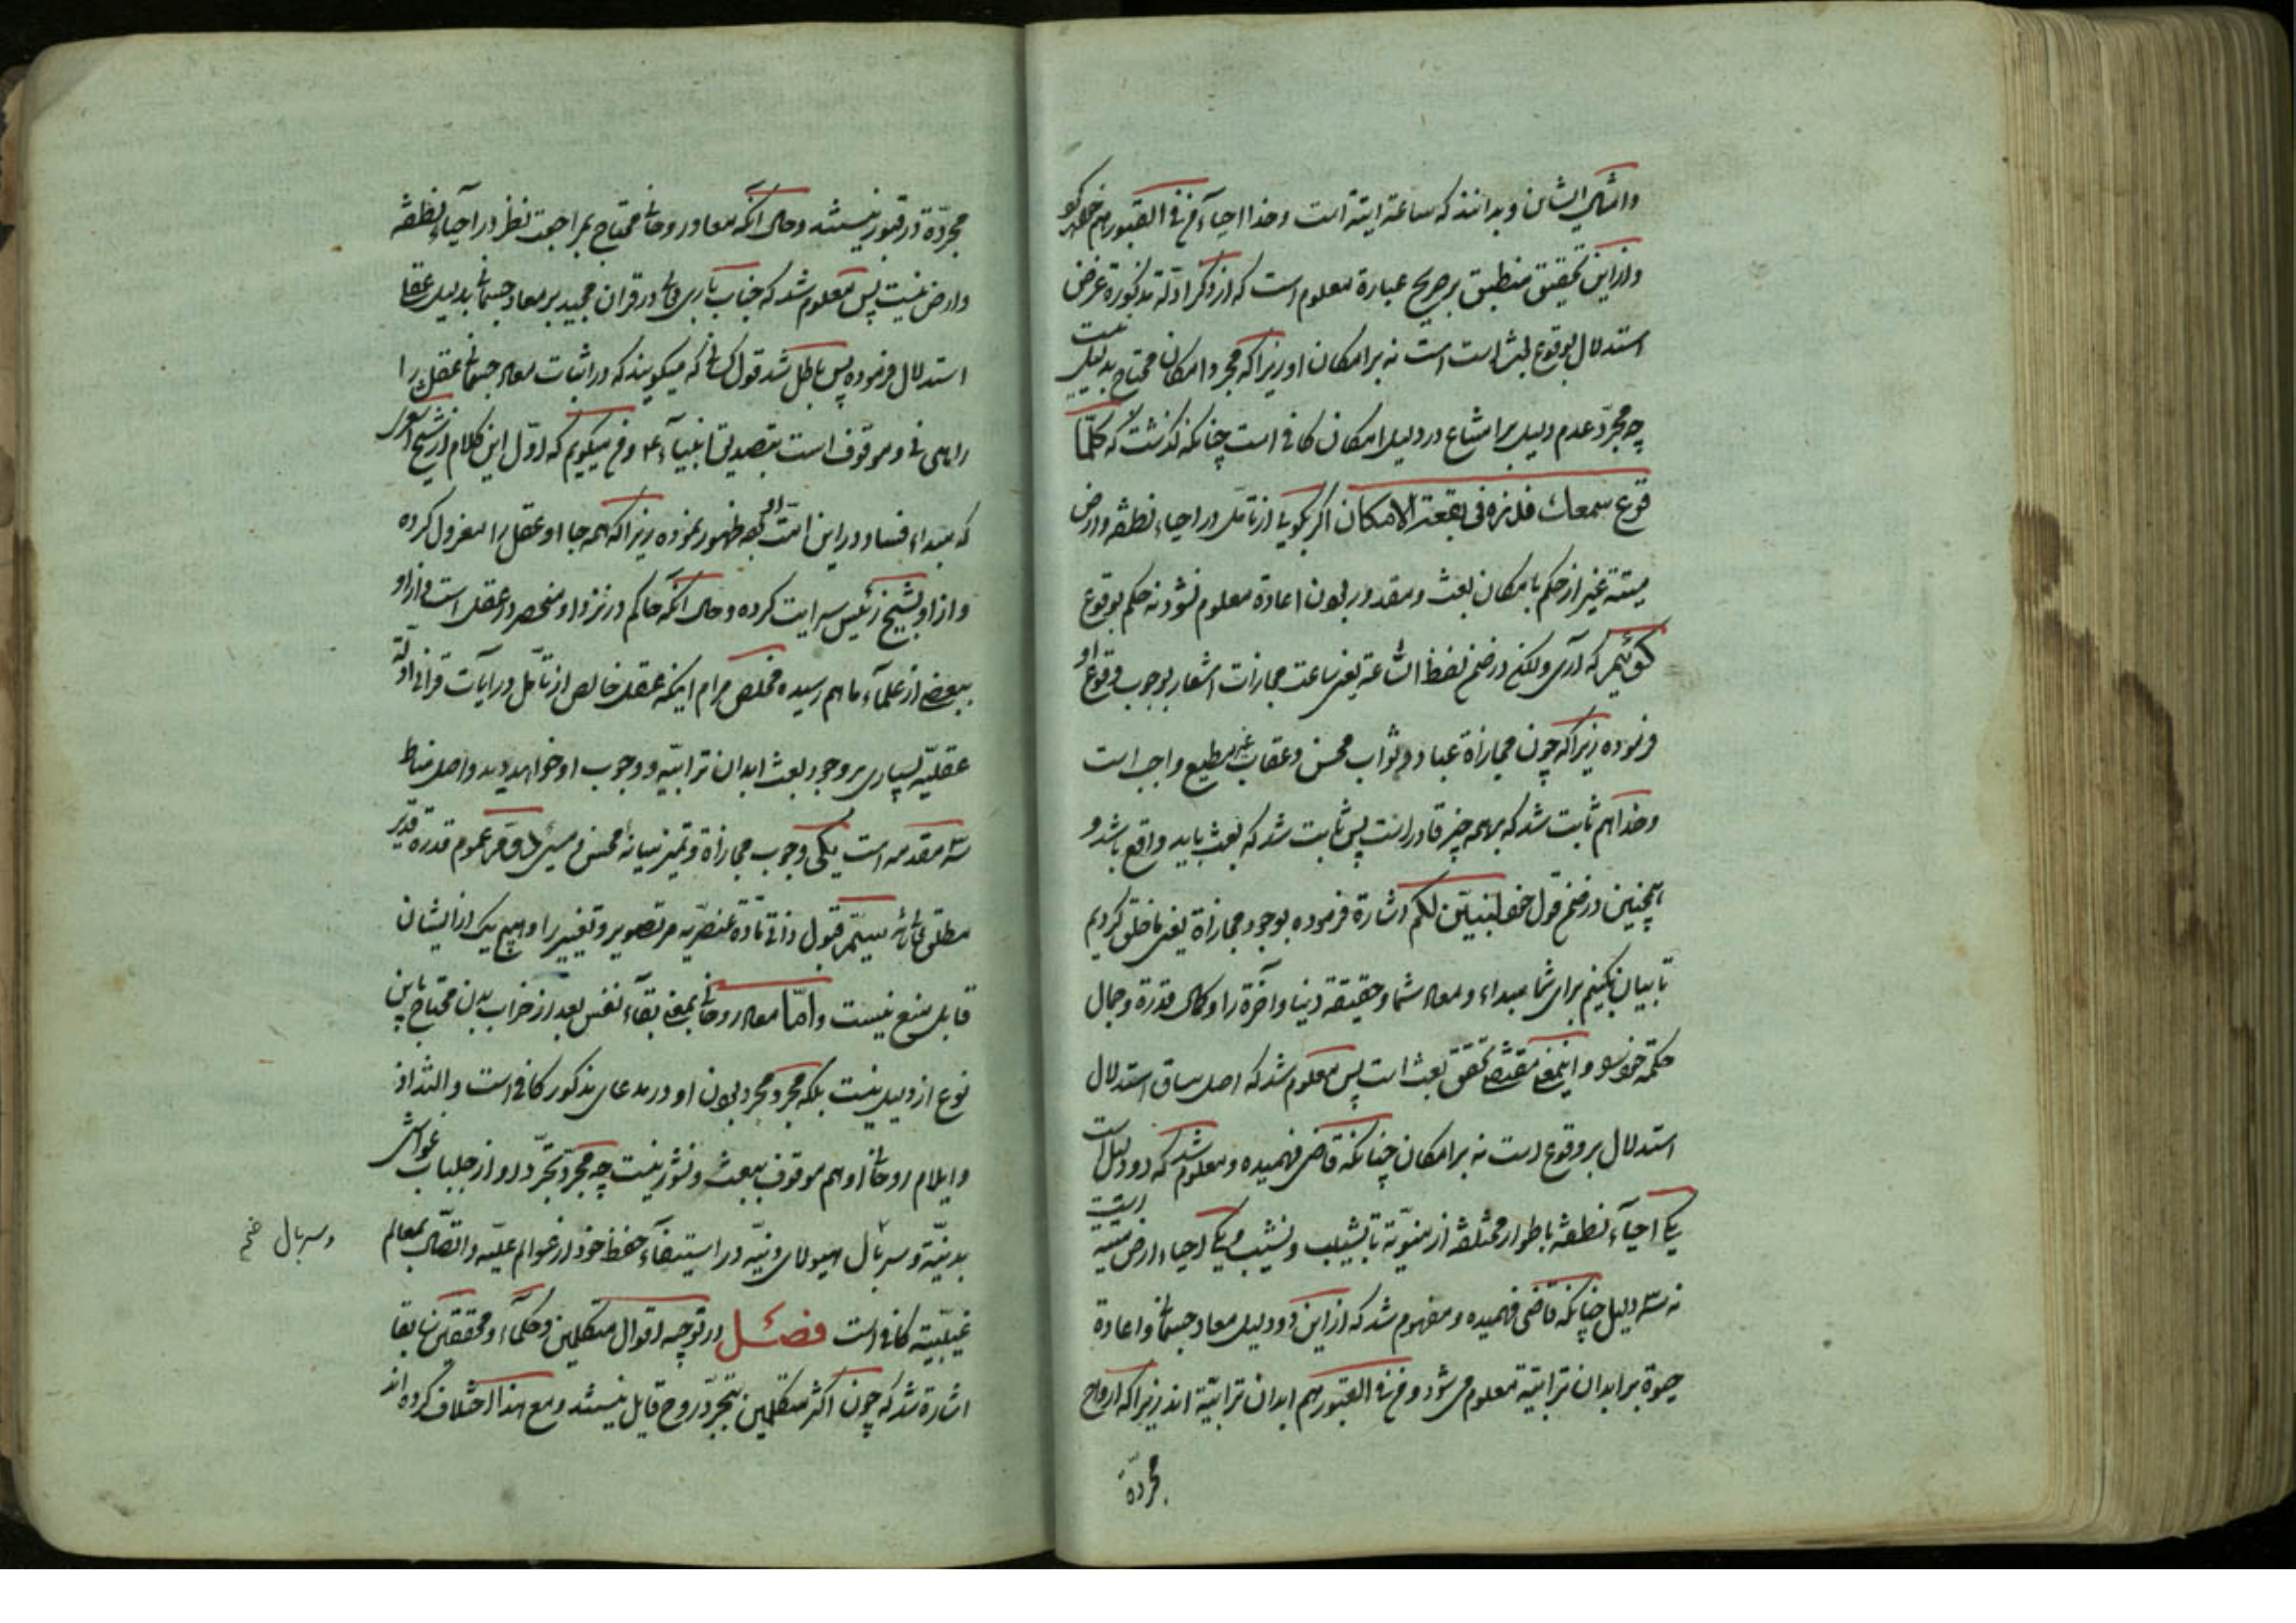 و ازین تحقیق منطبق بر صریح عبارة معلوم است که از ذکر ادلّه مذکورة غرض
استدلال بوقوع بعث است نه بر امکان او زیرا که مجرد امکان محتاج بدلیل نیست
چه مجرّد عدم دلیل بر امتناع در دلیل امکان کافی است چنانکه گذشت که کلّما
قرع سمعك فذره فی بقعة الامکان اگر بگویی از تأمّل در احیاء نطفه و ارض
میته غیر از حکم بامکان بعث و مقدور بودن اعادة معلوم نشود نه حکم بوقوع او
گوئیم که آری ولکن در ضمن لفظ السّاعة یعنی ساعت مجازات اشعار بوجوب وقوع
فرموده زیرا که چون مجازاة عباد و ثواب محسن و عقاب غیر مطیع واجب است
و خدا هم ثابت شد که بر همه چیز قادر است پس ثابت شد که بعث باید واقع باشد و
همچنین در ضمن قول خود لنبیّن لکم اشارة فرموده بوجود مجازاة یعنی ما خلق کردیم
تا بیان بکنیم برای شما مبداء و معاد شما و حقیقة دنیا و آخرة را و کمال قدرة و جمال
حکمة خود را و اینمعنی مقتضی تحقق بعث است پس معلوم شد که اصل سیاق استدلال
استدلال بر وقوع است نه بر امکان چنانکه قاضی فهمیده و معلوم شد که دو دلیل است
یکی احیاء نطفه باطوار مختلفه از منویّة تا تشبیب و یکی احیاء ارض میته است
نه سه دلیل چنانکه قاضی فهمیده و مفهوم شد که از این دو دلیل معاد جسمانی و اعادة
حیوة بر ابدان ترابیّه معلوم می شود و من فی القبور هم ابدان ترابیّة اند زیرا که ارواح
مجرّدة
مجرّدة در قبور نیستند و حال آنکه معاد روحانی محتاج بمراجعت نظر در احیاء نطفه
و ارض نیست پس معلوم شد که جناب باری تعالی در قران مجید بر معاد جسمانی بدلیل عقلی
استدلال فرموده پس باطل شد قول کسانی که میگویند که در اثبات معاد جسمانی عقل را
راهی نی و موقوف است بتصدیق انبیاء ع و من میگویم که اوّل این کلام از شیخ اشعری
که مبداء فساد در این امّت او بود ظهور نموده زیرا که همه جا او عقل را معزول کرده
و از او بشیخ رئیس سرایت کرده و حال آنکه حاکم در نزد او منحصر در عقل است و از او
ببعضی از علماء ما هم رسیده مخلص مرام اینکه عقل خالص از تأمّل در آیات قرانی ادلّه
عقلیّه بسیاری بر وجود بعث ابدان ترابیّه و وجوب او خواهد دید و اصل مناط
سه مقدمه است یکی وجوب مجازاة و تمیز میانه محسن و مسیء دوّم عموم قدرة قدیر
مطلق تعالی شانه سیّم قبول ذاتی مادّة عنصریّه مر تصویر و تغییر را و هیچ یک از ایشان
قابل منع نیست و امّا معاد روحانی بمعنی بقاء نفس بعد از خراب بدن محتاج باین
نوع از دلیل نیست بلکه مجرد مجرد بودن او در مدعای مذکور کافی است و التذاذ
و ایلام روحانی او هم موقوف ببعث و نشور نیست چه مجرّد تجرّد او از جلباب غواشی
بدنیّة و سربال هیولای دنیّه در استیفاء حظ خود از عوالم علیّه و اتصال بمعالم
و سربال
غیبیّة کافی است فصل در توجیه اقوال متکلمین و حکماء و محققین سابقا
اشارة شد که چون اکثر متکلمین بتجرّد روح قایل نیستند و مع هذا اختلاف کرده اند